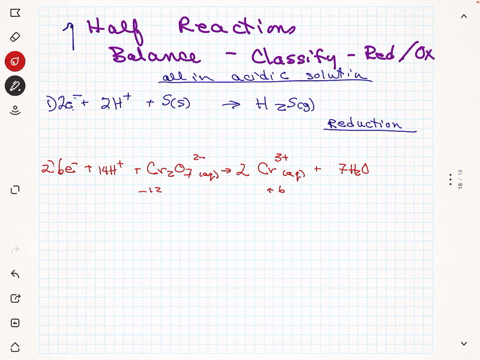 Half Reactions
Balance - Classify - Red/Ox
all in acidic solutin
1) 2e⁻ + 2H⁺ + S(s) → H₂S(g)
Reduction
2) 6e⁻ + 14H⁺ + Cr₂O₇²⁻(aq) → 2 Cr³⁺(aq) + 7H₂O
-12 +6
18 / 18